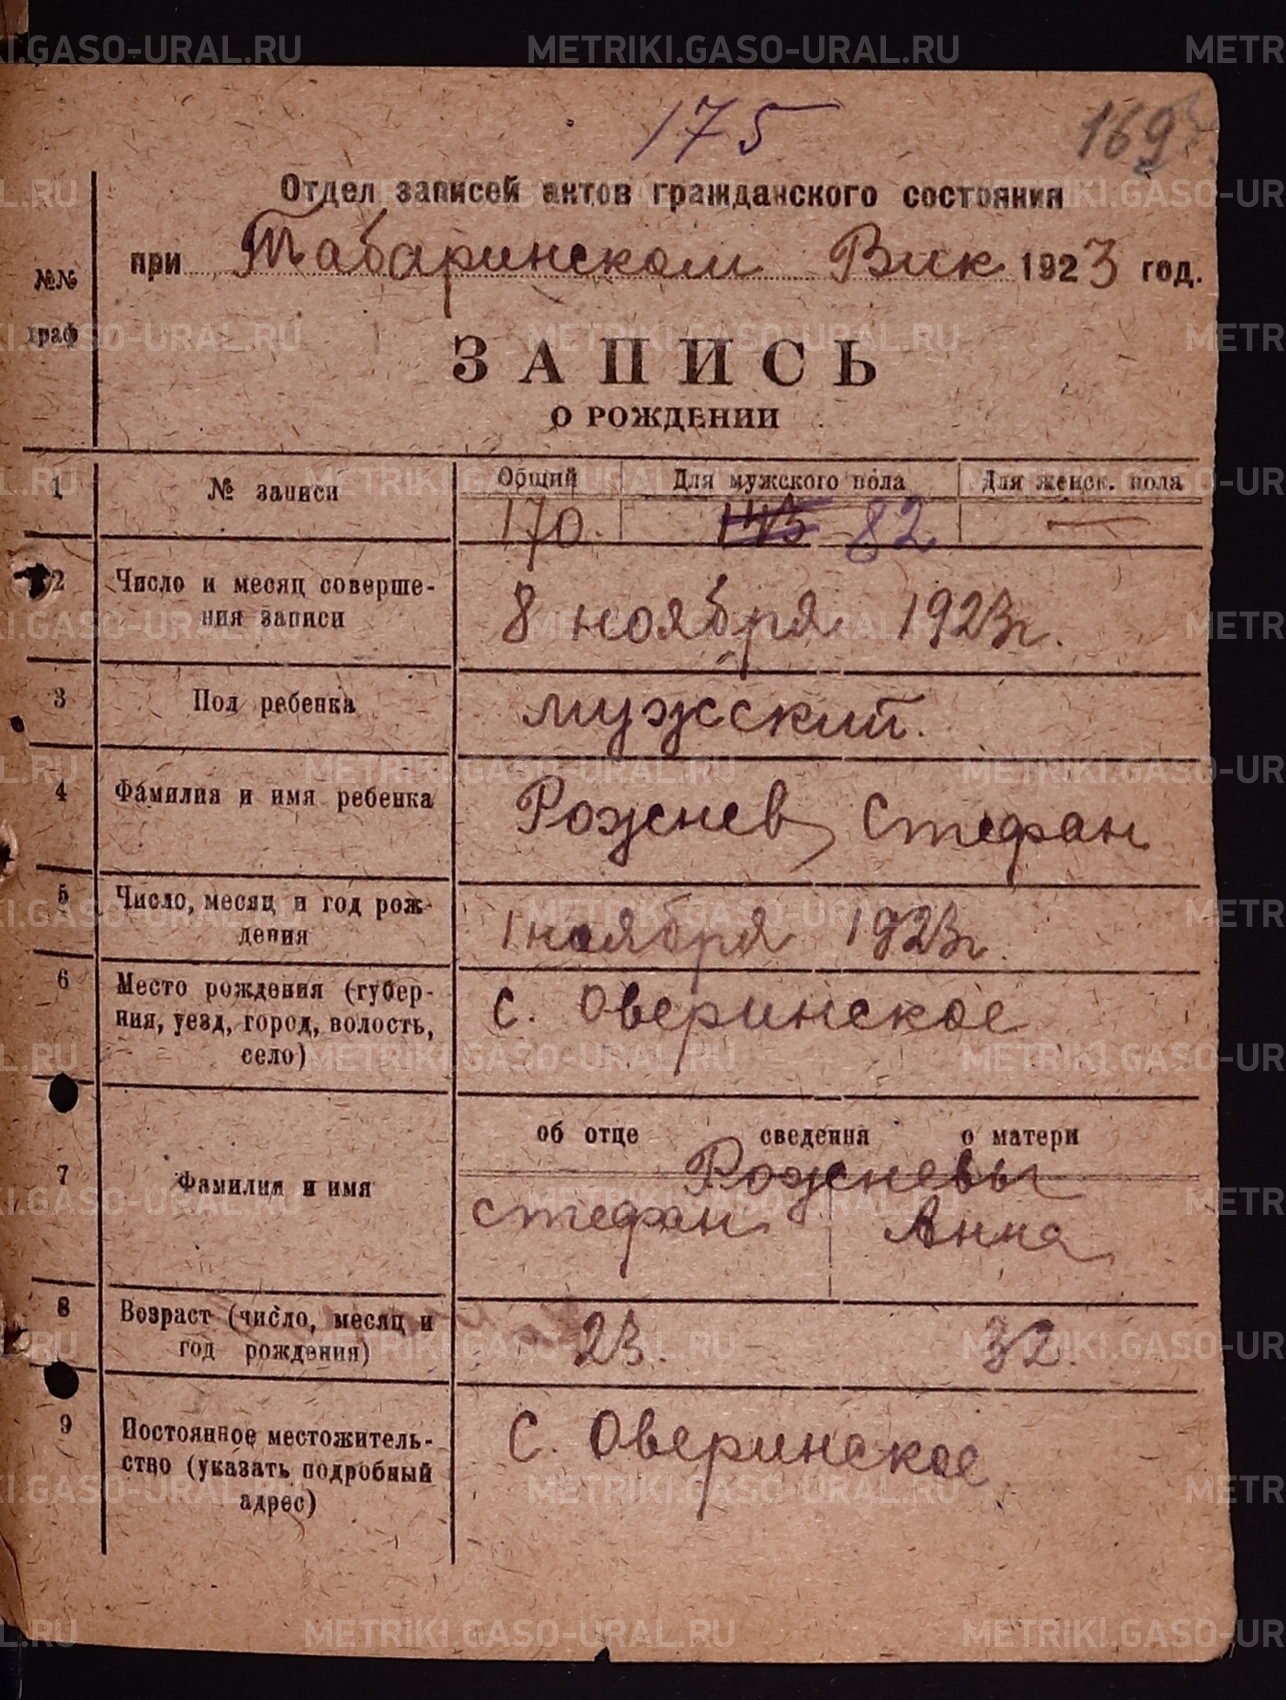 175
169
Отдел записей актов гражданского состояния
при Табаринском Вик 1923 год.
№№
граф
ЗАПИСЬ
О РОЖДЕНИИ
1 № записи Общий Для мужского пола Для женск. пола
170. 82 —
2 Число и месяц соверше-
ния записи
8 ноября 1923 г.
3 Пол ребенка мужской.
4 Фамилия и имя ребенка Рожнев Стефан
5 Число, месяц и год рож-
дения
1 ноября 1923 г.
6 Место рождения (губер-
ния, уезд, город, волость,
село)
с. Оверинское
об отце сведения о матери
7 Фамилия и имя
Рожневы
Стефан Анна
8 Возраст (число, месяц и
год рождения)
23. 32.
9 Постоянное местожитель-
ство (указать подробный
адрес)
с. Оверинское
METRIKI.GASO-URAL.RU